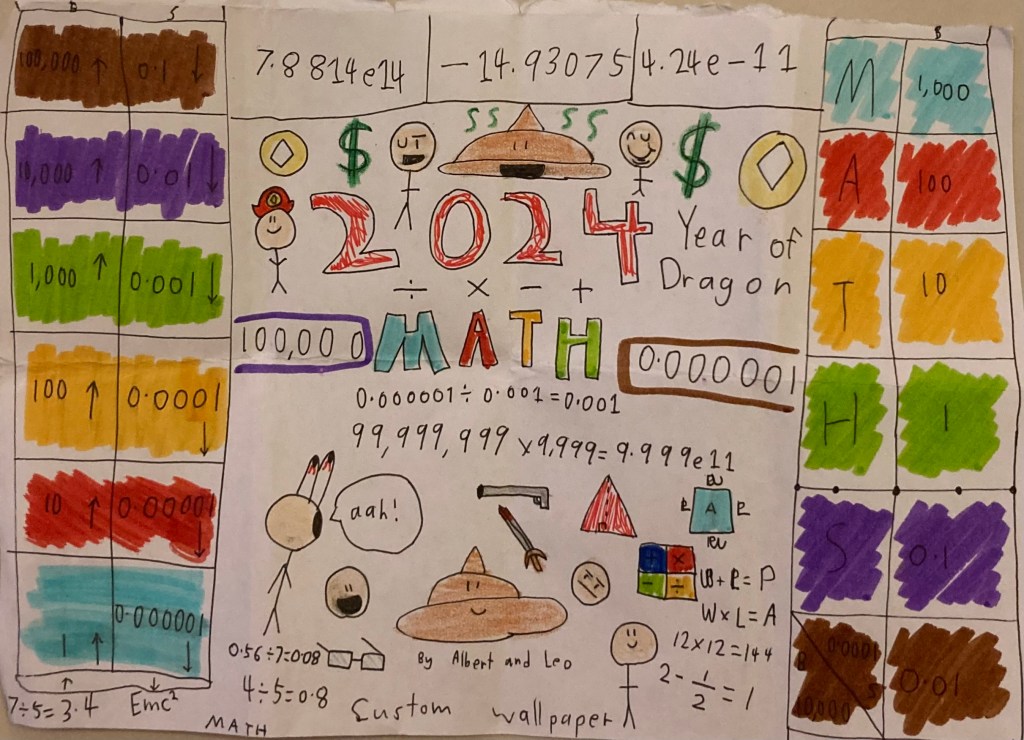 B S
100,000 ↑ 0.1 ↓
10,000 ↑ 0.01 ↓
1,000 ↑ 0.001 ↓
100 ↑ 0.0001 ↓
10 ↑ 0.00001 ↓
1 ↑ 0.000001 ↓
7÷5=3.4
Emc²
MATH
7.8814e14
-14.93075
4.24e-11
$ SS SS $
2024
Year of
Dragon
÷ × - +
100,000
MATH
0.000001
0.000001÷0.001=0.001
99,999,999×9,999=9.999e11
aah!
A
+ ×
- ÷
W×L=A
12×12=144
2-1/2=1
0.56÷7=0.08
4÷5=0.8
By Albert and Leo
Custom wallpaper
B
M 1,000
A 100
T 10
H 1
S 0.1
B 0.0001 S 0.01
10,000